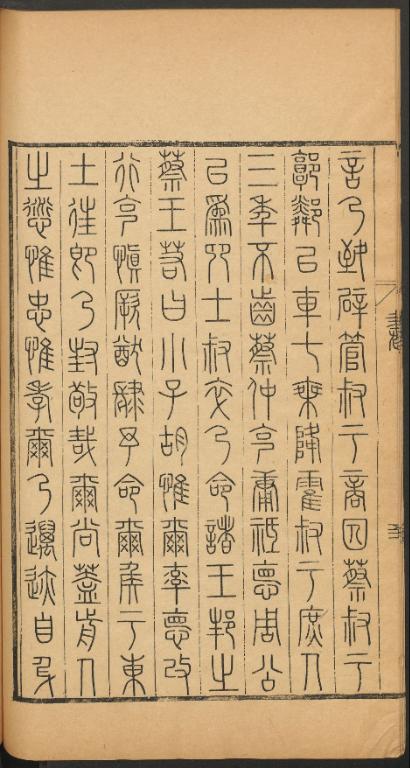 言乃致辟管叔于商囚蔡叔于
郭鄰以車七乘降霍叔于庶人
三年不齒蔡仲克庸祗德周公
以為卿士叔卒乃命諸王邦之
蔡王若曰小子胡惟爾率德改
行克慎厥猷肆予命爾侯于東
土往即乃封敬哉爾尚蓋前人
之愆惟忠惟孝爾乃邁迹自身